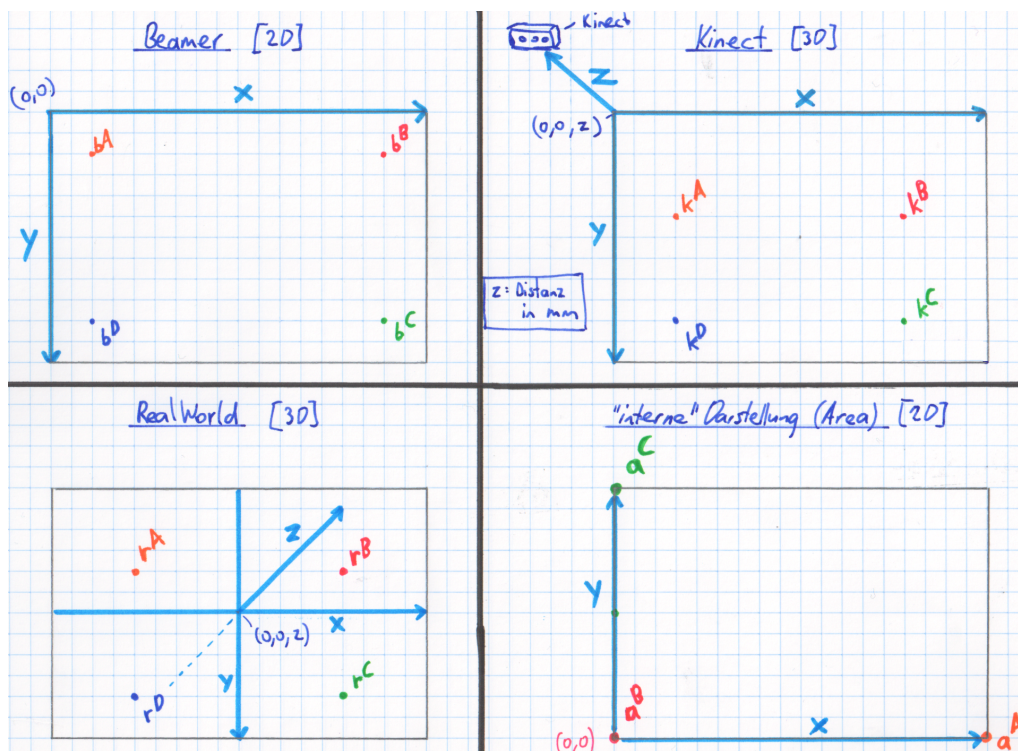 Beamer [2D]
(0,0)
x
b^A
b^B
y
b^D
b^C
Kinect
Kinect [3D]
z
x
(0,0,z)
k^A
k^B
y
z: Distanz
in mm
k^D
k^C
RealWorld [3D]
z
r^A
r^B
x
(0,0,z)
y
r^D
r^C
"interne" Darstellung (Area) [2D]
a^C
y
a^B
(0,0)
x
a^A